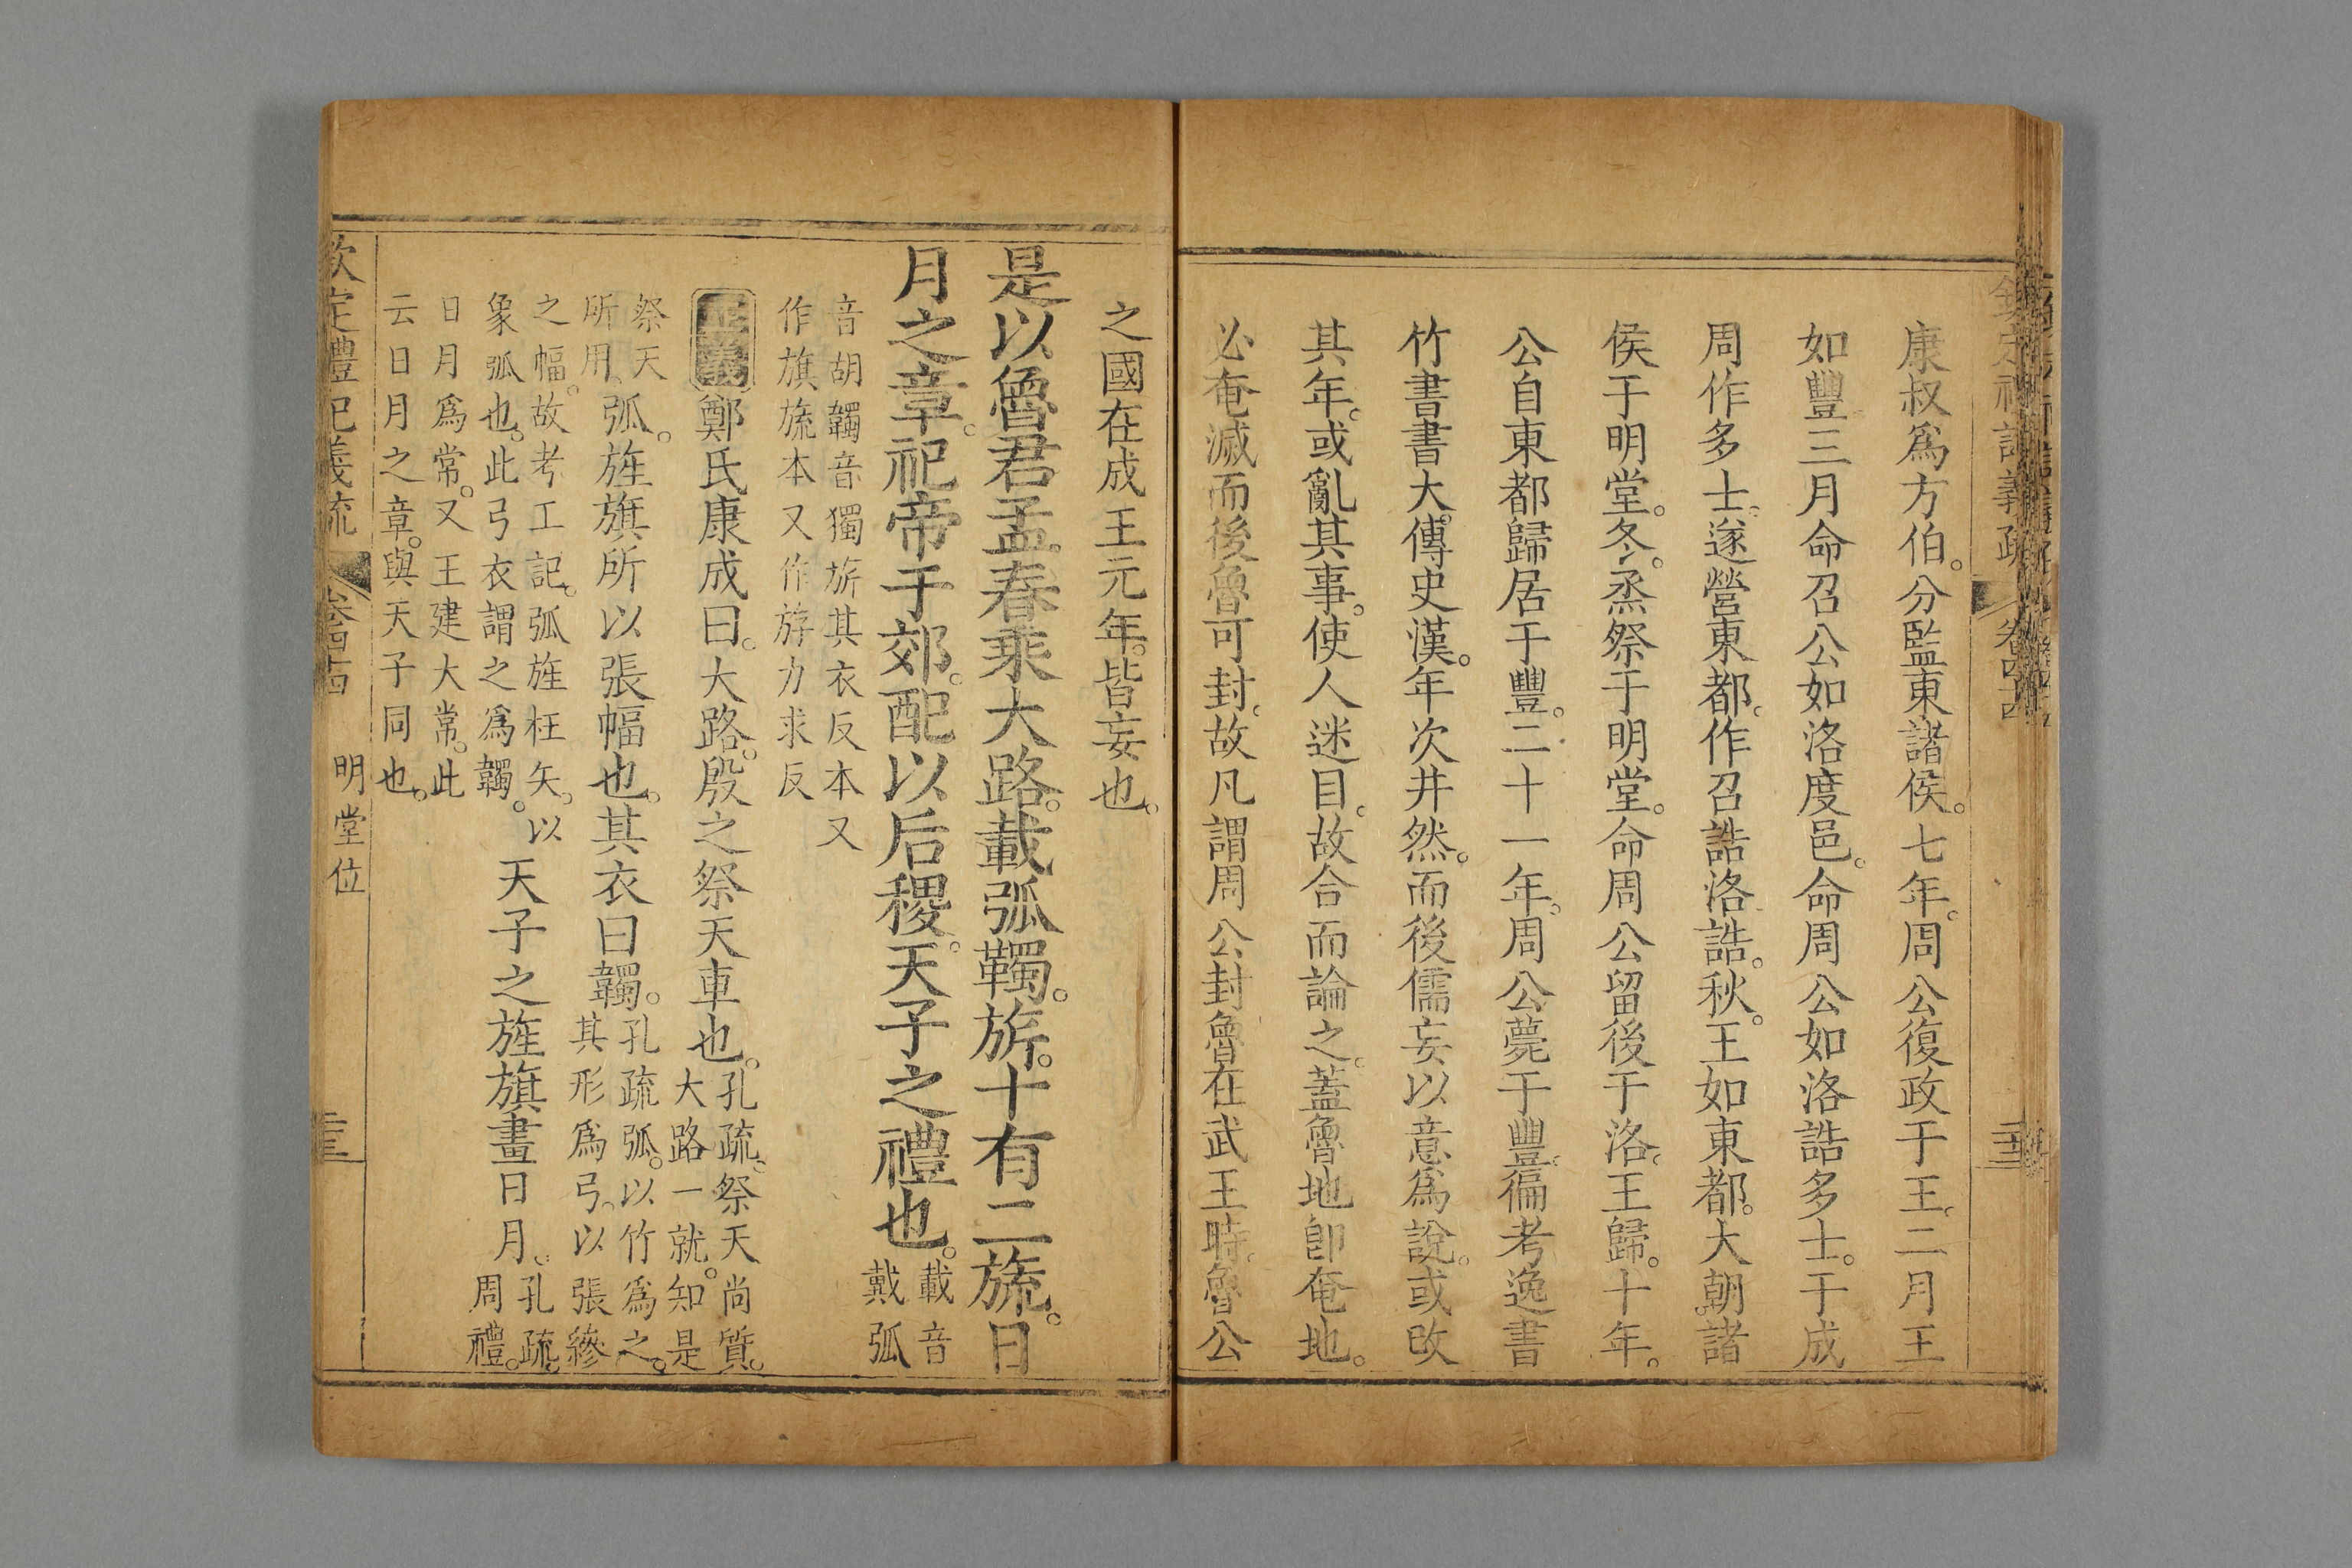 康叔爲方伯。分監東諸侯。七年。周公復政于王。二月王
如豐三月命召公如洛度邑。命周公如洛誥多士。于成
周作多士。遂營東都。作召誥洛誥。秋。王如東都。大朝諸
侯于明堂。冬。烝祭于明堂。命周公留後于洛。王歸。十年。
公自東都歸居于豐。二十一年。周公薨于豐。徧考逸書
竹書書大傳史漢。年次井然。而後儒妄以意爲說。或改
其年。或亂其事。使人迷目。故合而論之。蓋魯地卽奄地。
必奄滅而後魯可封。故凡謂周公封魯在武王時。魯公
之國在成王元年。皆妄也。
是以魯君孟春乘大路。載弧韣。旂。十有二旒。日
月之章。祀帝于郊。配以后稷。天子之禮也。載音
戴弧
音胡韣音獨旂其衣反本又
作旗旒本又作斿力求反
正義鄭氏康成曰。大路。殷之祭天車也。孔疏。祭天尚質。
大路一就。知是
祭天
所用。弧。旌旗所以張幅也。其衣曰韣。孔疏弧。以竹爲之。
其形爲弓。以張縿
之幅。故考工記。弧旌枉矢。以
象弧也。此弓衣謂之爲韣。天子之旌旗畫日月。孔疏。
周禮。
日月爲常。又王建大常。此
云日月之章。與天子同也。
欽定禮記義疏 卷四十四 明堂位